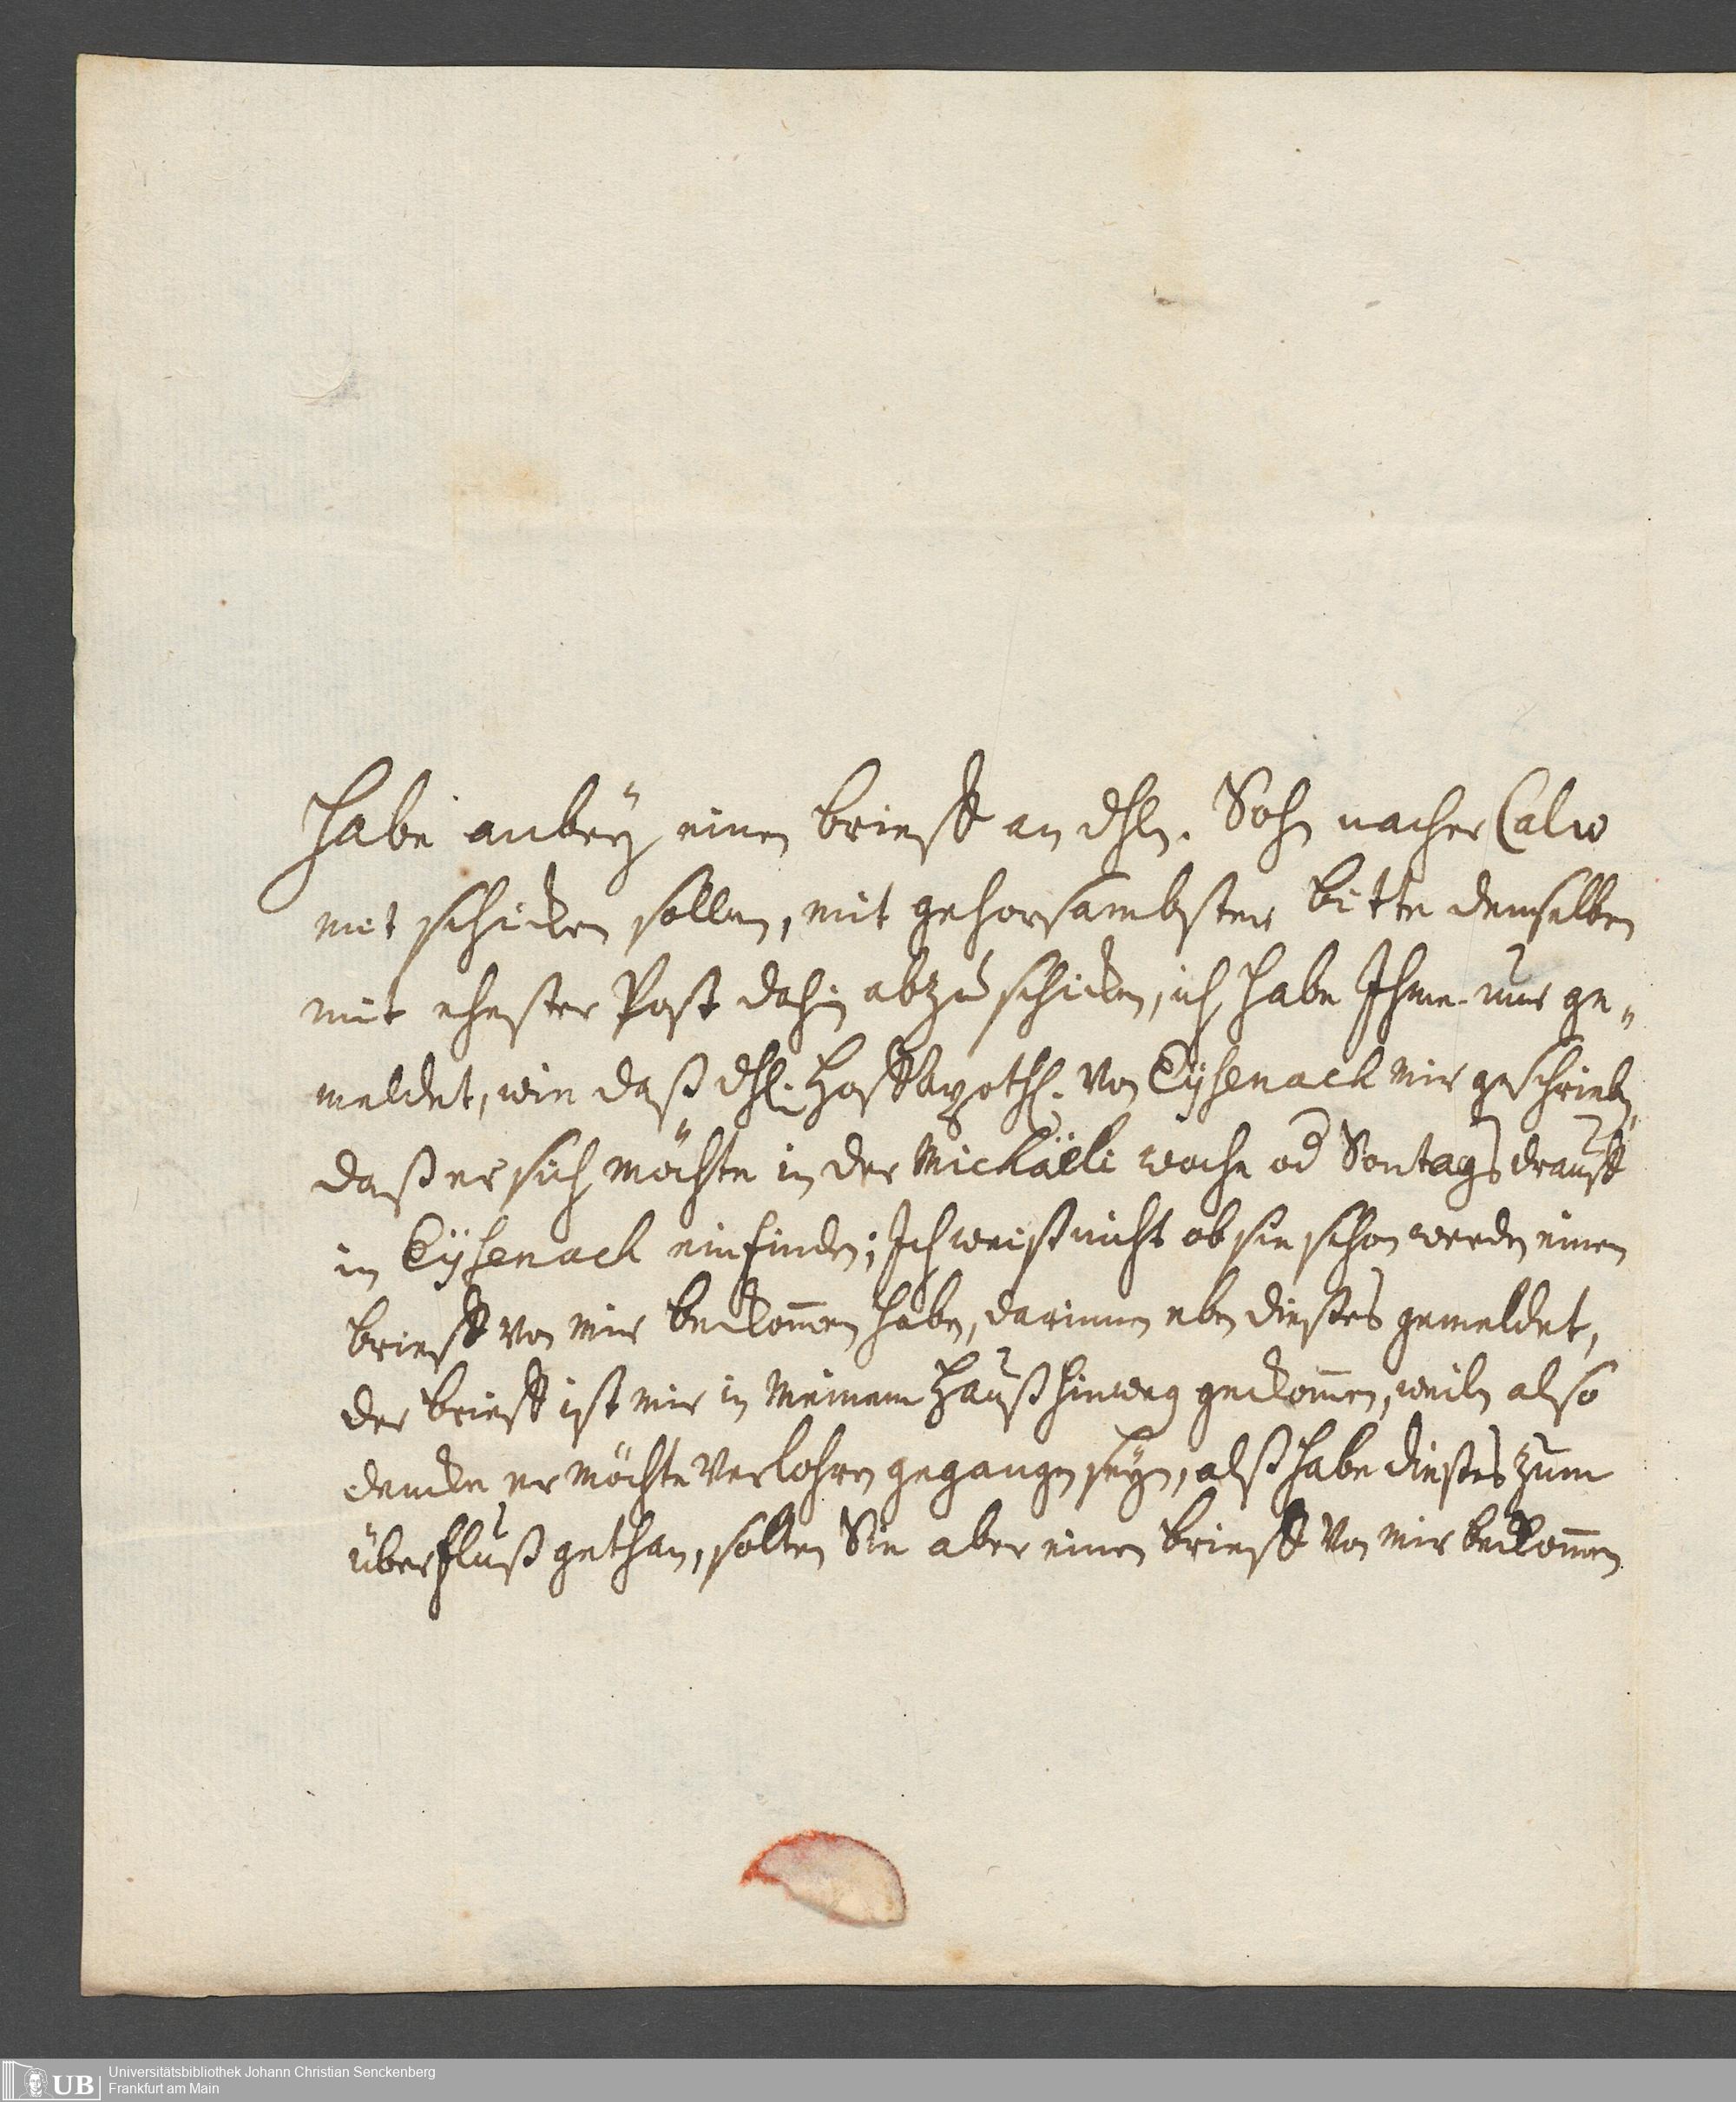 Habe anbeÿ einen brieff an dhln. Sohn nacher Calw
mit schicken sollen, mit gehorsambster bitte denselben
mit ehester Post dahin abzuschicken, ich habe Ihme nur ge„
meldet, wie daß dhl. Hoffapoth. von Eÿsenack mir geschrieben,
daß er sich möchte in der Michäeli woche od Sontags drauff
in Eÿsenack einfinden; Ich weiß nicht ob sie schon werden einen
brieff von mir beckom̄en haben, darinnen eben dießes gemeldet,
der brieff ist mir in meinem Hauß hinweg geckom̄en, weiln also
dencke er möchte verlohren gegangen seÿn, alß habe dießes zum
überfluß gethan, solten Sie aber einen brieff von mir beckom̄en
UB
Universitätsbibliothek Johann Christian Senckenberg
Frankfurt am Main